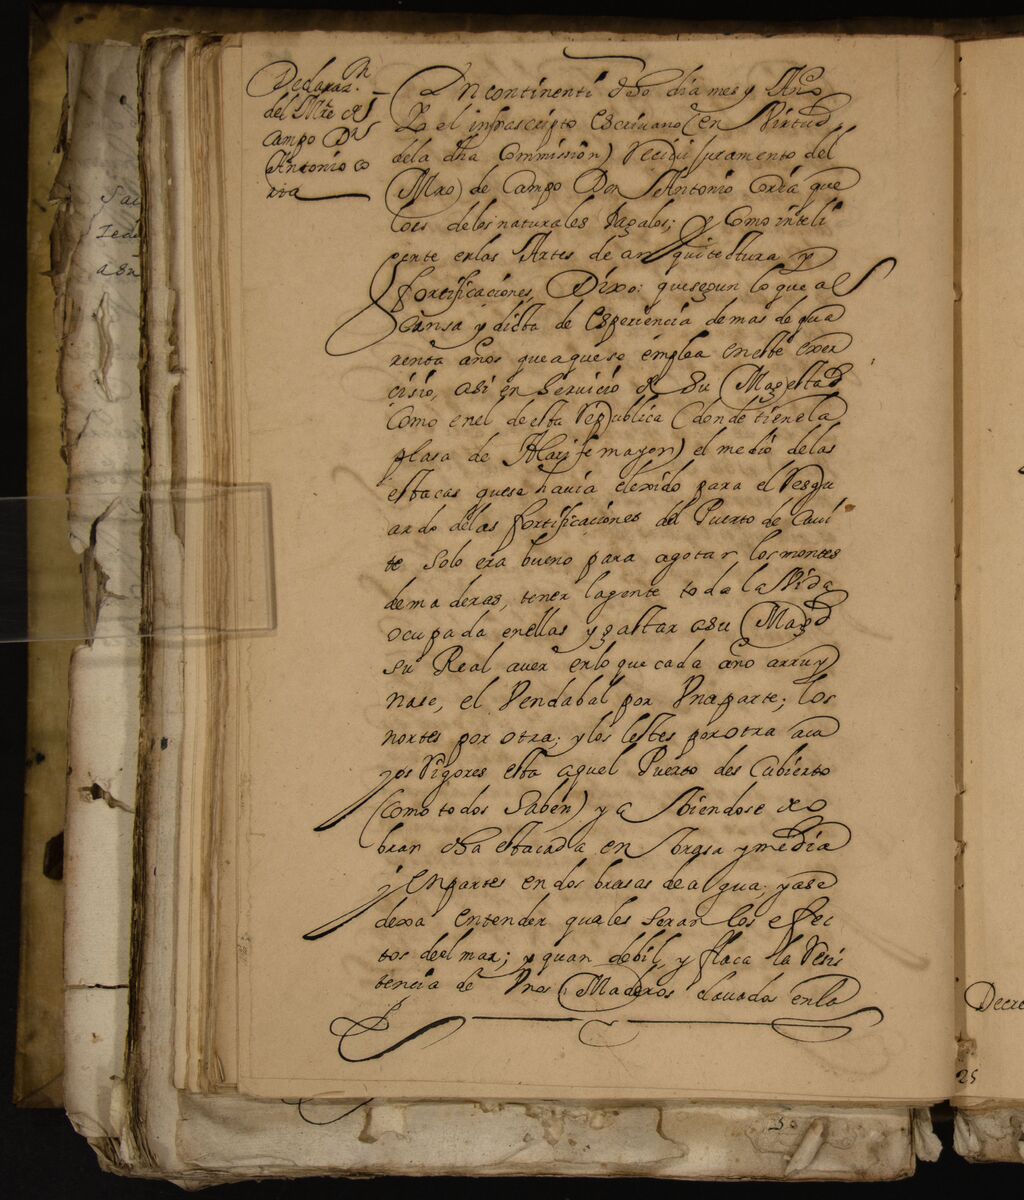 Declaraz.n
del Mre de
campo Dn
Antonio co
ria
En continenti dho dia mes y Año
Yo el infrascripto escrivano (en Virtud
dela dha Commission) Recivi juramento del
Mro de Campo Don Antonio Coria que
loes delos naturales tagalos; y Como inteli
gente enlas Artes de arquitectura y
fortificaciones, Dixo: que segun lo que al
cansa y dicta de Esperiencia de mas de qua
renta años que a que se emplea en este exer
cisio, asi en Servicio de Su Magestad
Como en el de esta Republica (donde tiene la
plasa de Alarife mayor) el medio delas
estacas que se havia elexido para el Resgu
ardo delas fortificaciones del Puerto de Cavi
te solo era bueno para agotar los montes
de maderas, tener la gente toda la Vida
ocupada en ellas y gastar a su Magd
su Real aver en lo que cada año arruy
nase, el Vendabal por Una parte; los
nortes por otra; y los lestes por otra a cu
yos Rigores esta aquel Puerto des Cubierto
(como todos Saben) y a Viendose de o
brar dha estacada en brasa y media
y En partes en dos brasas de agua; ya se
dexa entender quales seran los efec
tos del mar; y quan debil, y flaca la Resis
tencia de Unos Maderos clavados en la
Decre
25